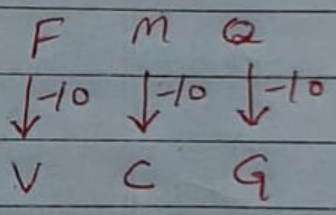 F M Q
-10 -10 -10
V C G